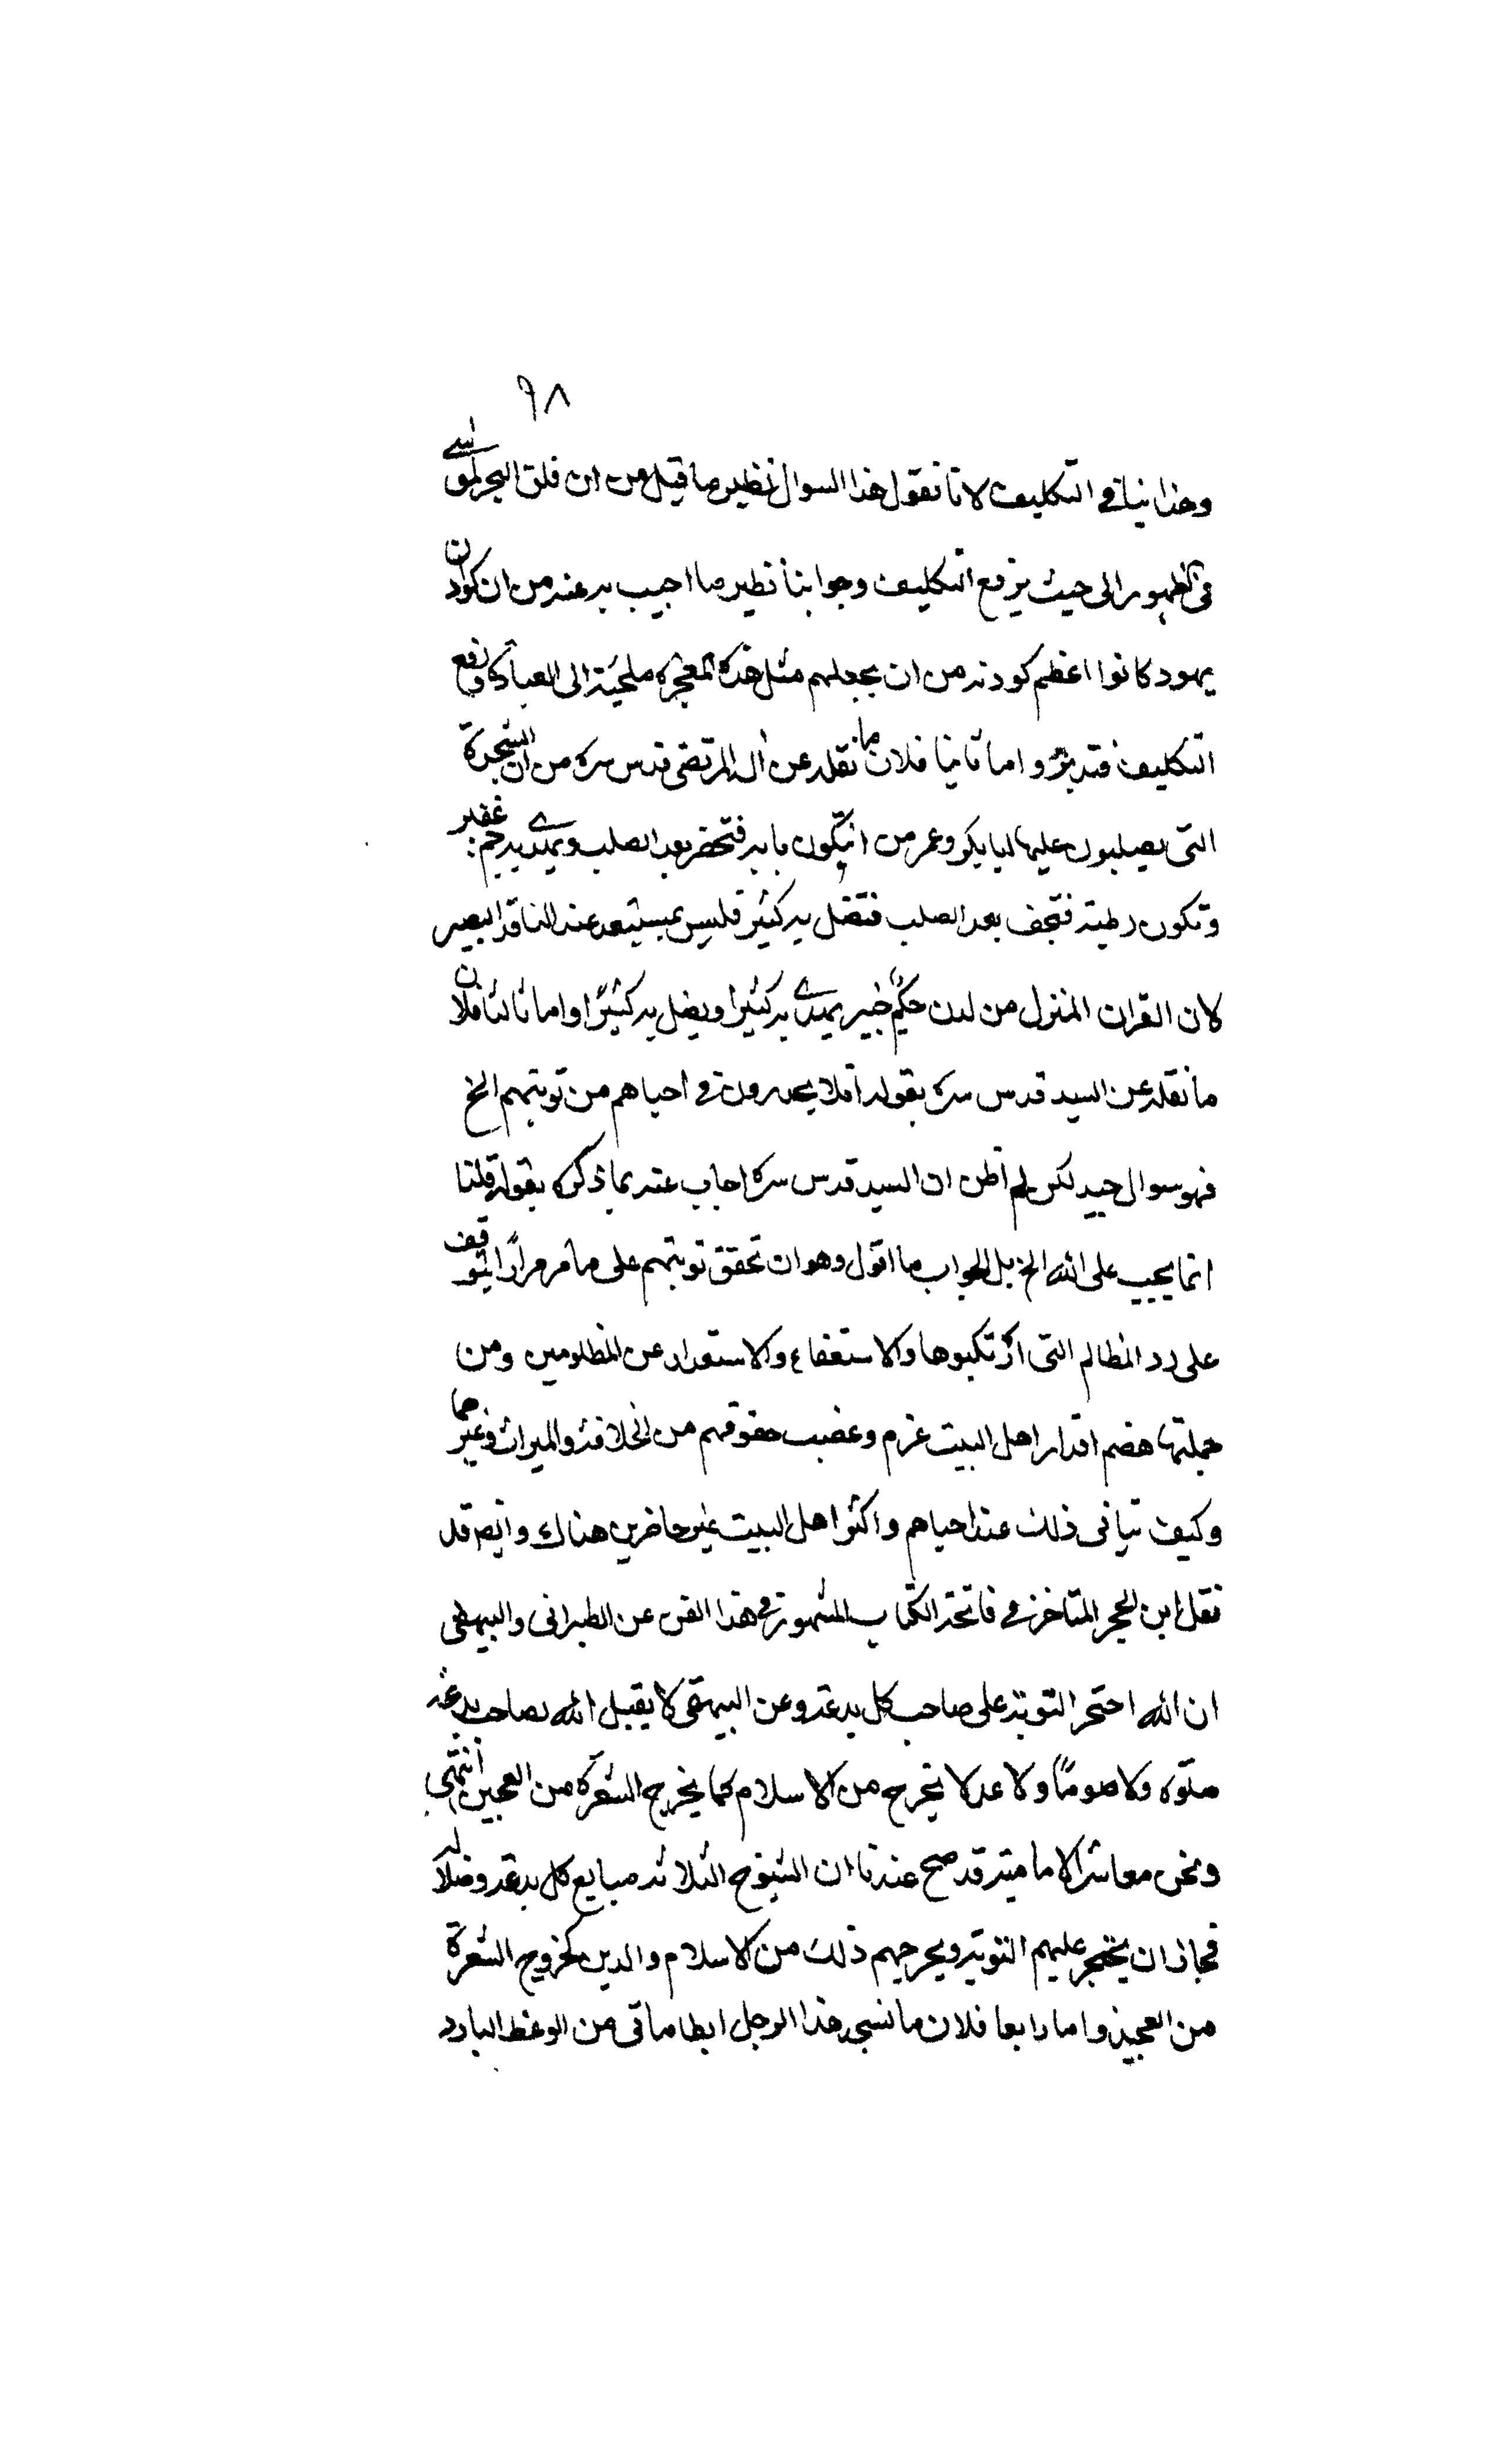 ٩٨
وهذا ينافي التكليف لانا نقول هذا السوال نظير ما قيل من ان فلق البحر لموسى
في الظهور الى حيث يرفع التكليف وجوابنا نظير ما اجيب به عنه من ان كوادن
يهود كانوا اعظم كودنة من ان يجعلهم مثل هذه المعجزة ملجئة الى العبادة ورفع
التكليف فتدبر واما ثانيا فلان ما نقله عن المرتضى قدس سره من ان الشجرة
التي يصلبون عليها ابا بكر وعمر من ان يكون يابسة فتخضر بعد الصلب ويهدي به جم غفير
وتكون رطبة فتجف بعد الصلب فتضل به كثير فليس بمستبعد عند الناقد البصير
لان القران المنزل من لدن حكيم خبير يهدي به كثيرا ويضل به كثيرًا واما ثالثا فلان
ما نقله عن السيد قدس سره بقوله افلا يحذرون في احياهم من توبتهم الخ
فهو سوال جيد لكن لم اظن ان السيد قدس سره اجاب عنه بما ذكره بقوله قلنا
انما يجب على الله الخ بل الجواب ما اقول وهو ان تحقق توبتهم على ما مر مرارًا يتوقف
على رد المظالم التي ارتكبوها والاستعفاء والاستعذار عن المظلومين ومن
جملتها هضم اقدار اهل البيت وغصب حقوقهم من الخلافة والميراث وغيرهما
وكيف يتاتى ذلك عند احياهم واكثر اهل البيت غير حاضرين هناك وايضا قد
نقل ابن الحجر المتاخر في فاتحة الكتاب المشهور في هذا الفن عن الطبراني والبيهقي
ان الله احتجر التوبة على صاحب كل بدعة وعن البيهقي لا يقبل الله لصاحب بدعة
صلوة ولا صومًا ولا عدلا يخرج من الاسلام كما يخرج الشعرة من العجين انتهى
ونحن معاشر الامامية قد صح عندنا ان الشيوخ الثلاثة كل بدعة وضلالة
فجاز ان يحتجر عليهم التوبة ويخرجهم ذلك من الاسلام والدين كخروج الشعرة
من العجين واما رابعا فلان ما نسج هذا الرجل من الوعظ البارد